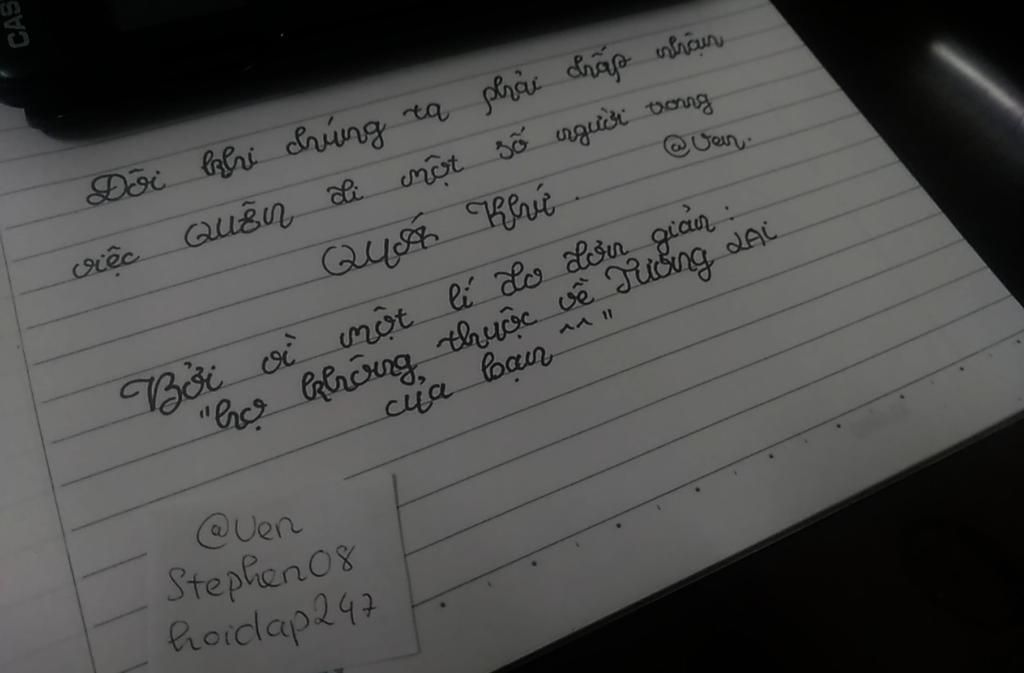 CAS
Đôi khi chúng ta phải chấp nhận
việc QUÊN đi một số người trong
@Ven.
QUÁ Khứ.
Bởi vì một lí do đơn giản:
"họ không thuộc về Tương LAi
của bạn ^^"
@Ven
Stephen08
hoidap247